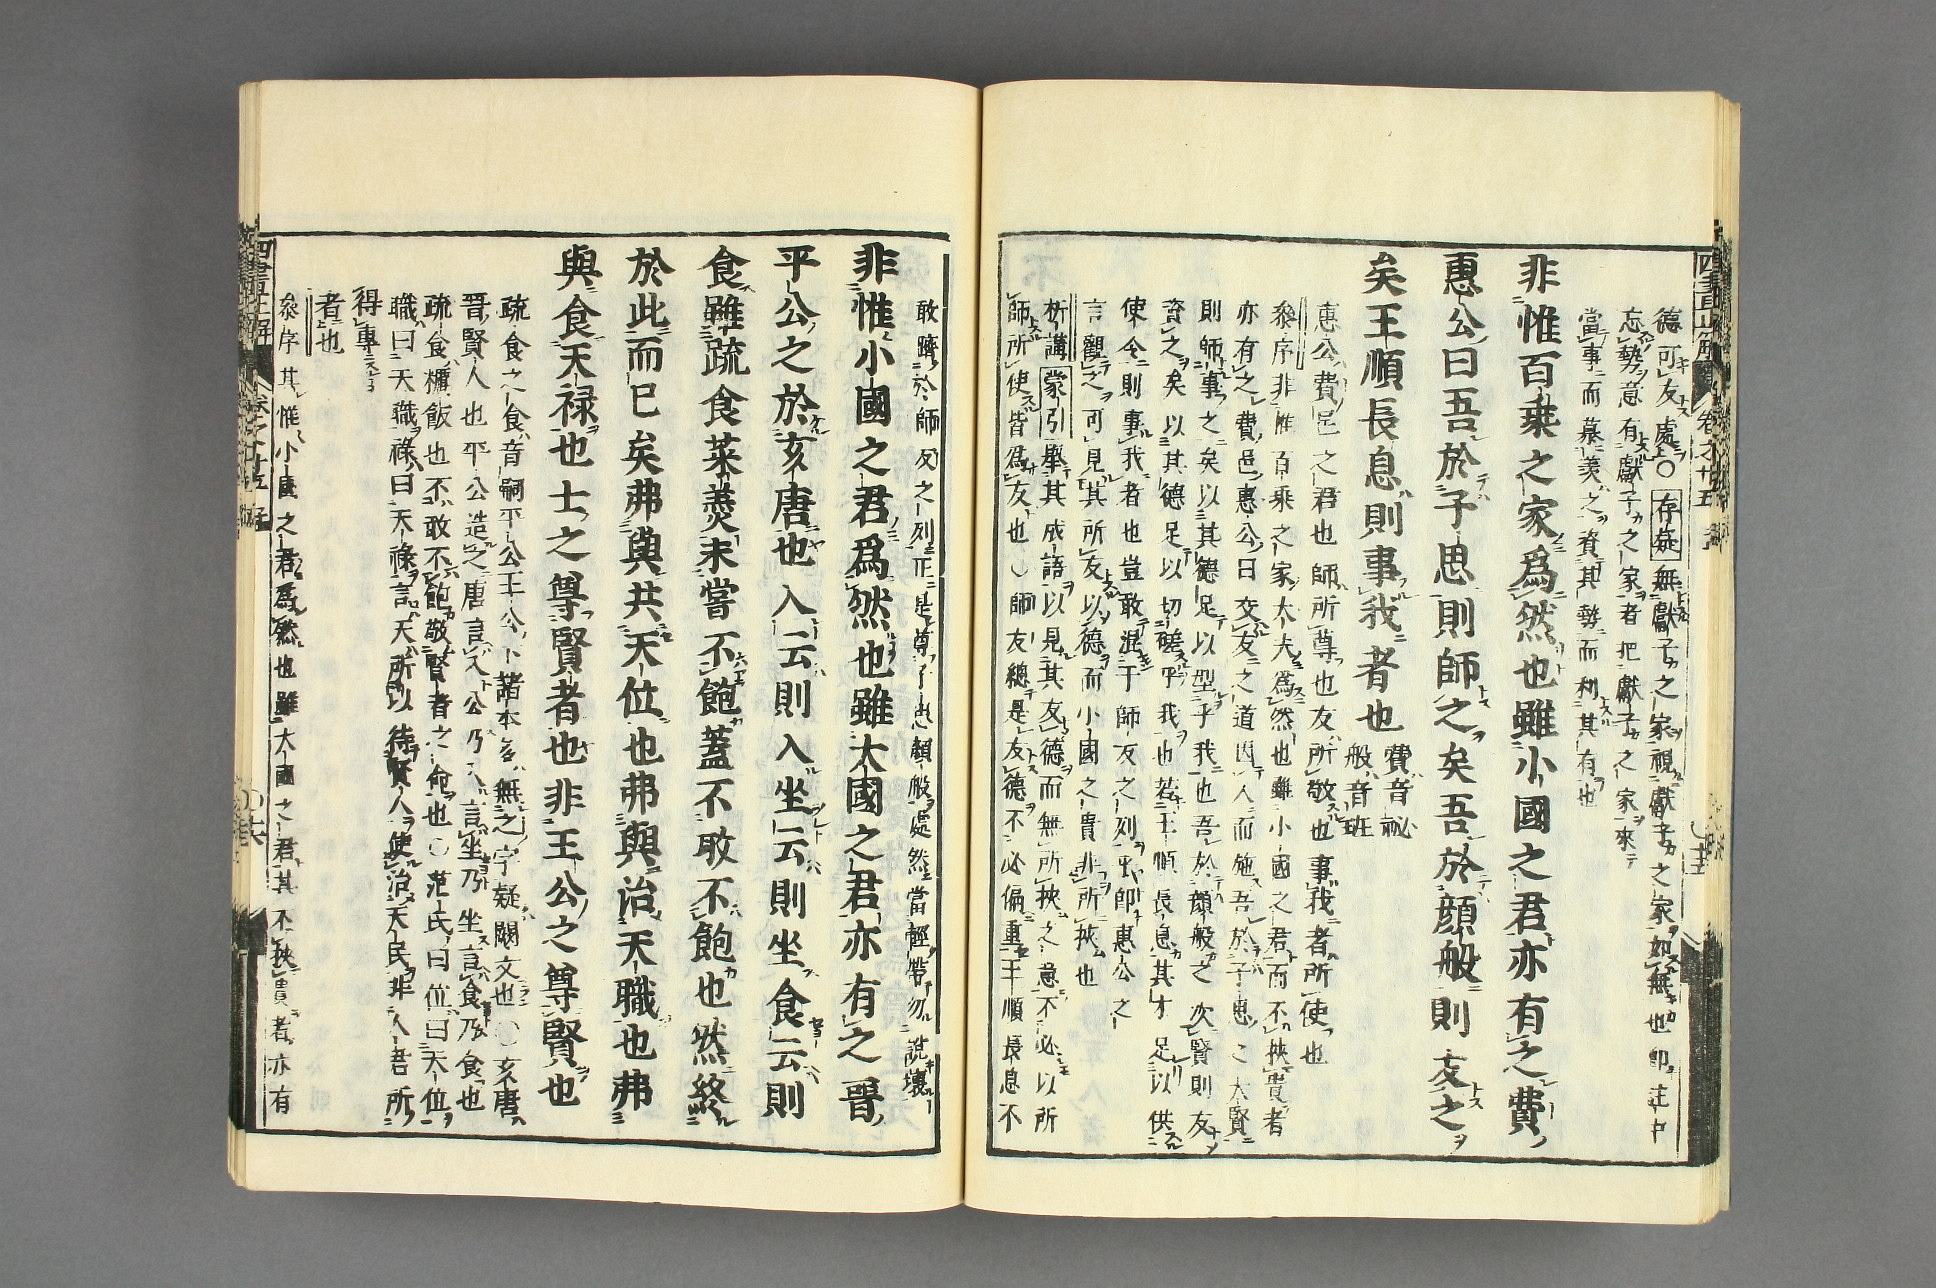 德可友處○存疑無獻子之家視獻子之家如無也卽註中
忘勢意有獻子之家者把獻子之家來
當事而慕羨之資其勢而利其有也
非惟百乘之家爲然也雖小國之君亦有之費
惠公曰吾於子思則師之矣吾於顏般則友之
矣王順長息則事我者也費音祕般音班
惠公費邑之君也師所尊也友所敬也事我者所使也
參序非惟百乘之家大夫爲然也雖小國之君而不挾貴者
亦有之費邑惠公曰交友之道因人而施吾於子思之大賢
則師事之矣以其德足以型乎我也吾於顏般之次賢則友
資之矣以其德足以切磋乎我也若王順長息其才足以供
使令則事我者也豈敢混于師友之列乎卽惠公之
言觀之可見其所友以德而小國之貴非所挾也
析講蒙引舉其成語以見其友德而無所挾之意不必以所
師所使皆爲友也○師友總是友德不必偏重王順長息不
敢躋於師友之列正是尊了思顏般處然當輕帶勿說壞
非惟小國之君爲然也雖大國之君亦有之晉
平公之於亥唐也入云則入坐云則坐食云則
食雖疏食菜羮未嘗不飽蓋不敢不飽也然終
於此而已矣弗與共天位也弗與治天職也弗
與食天禄也士之尊賢者也非王公之尊賢也
疏食之食音嗣平公王公下諸本多無之字疑闕文也○亥唐
晉賢人也平公造之唐言入公乃入言坐乃坐言食乃食也
疏食糲飯也不敢不飽敬賢者之命也○范氏曰位曰天位
職曰天職祿曰天祿言天所以待賢人使治天民非人君所
得專
者也
參序其惟小國之君爲然也雖大國之君其不挾貴者亦有